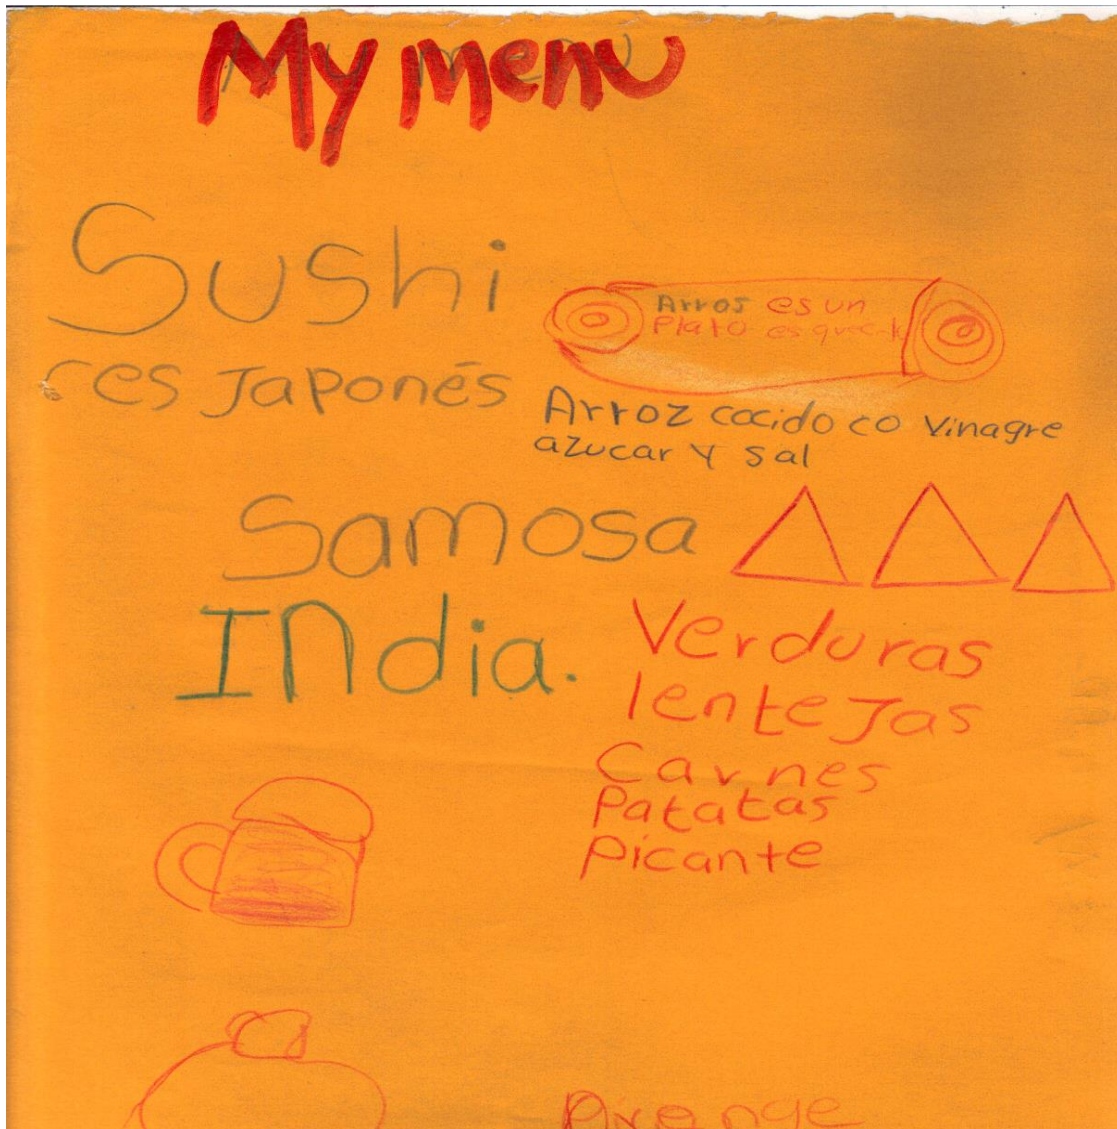 My menu
Sushi
res Japonés
Arros es un
Plato es que
Arroz cocido co vinagre
azucar y sal
Samosa
INdia.
Verduras
lentejas
Carnes
Patatas
Picante
Orange